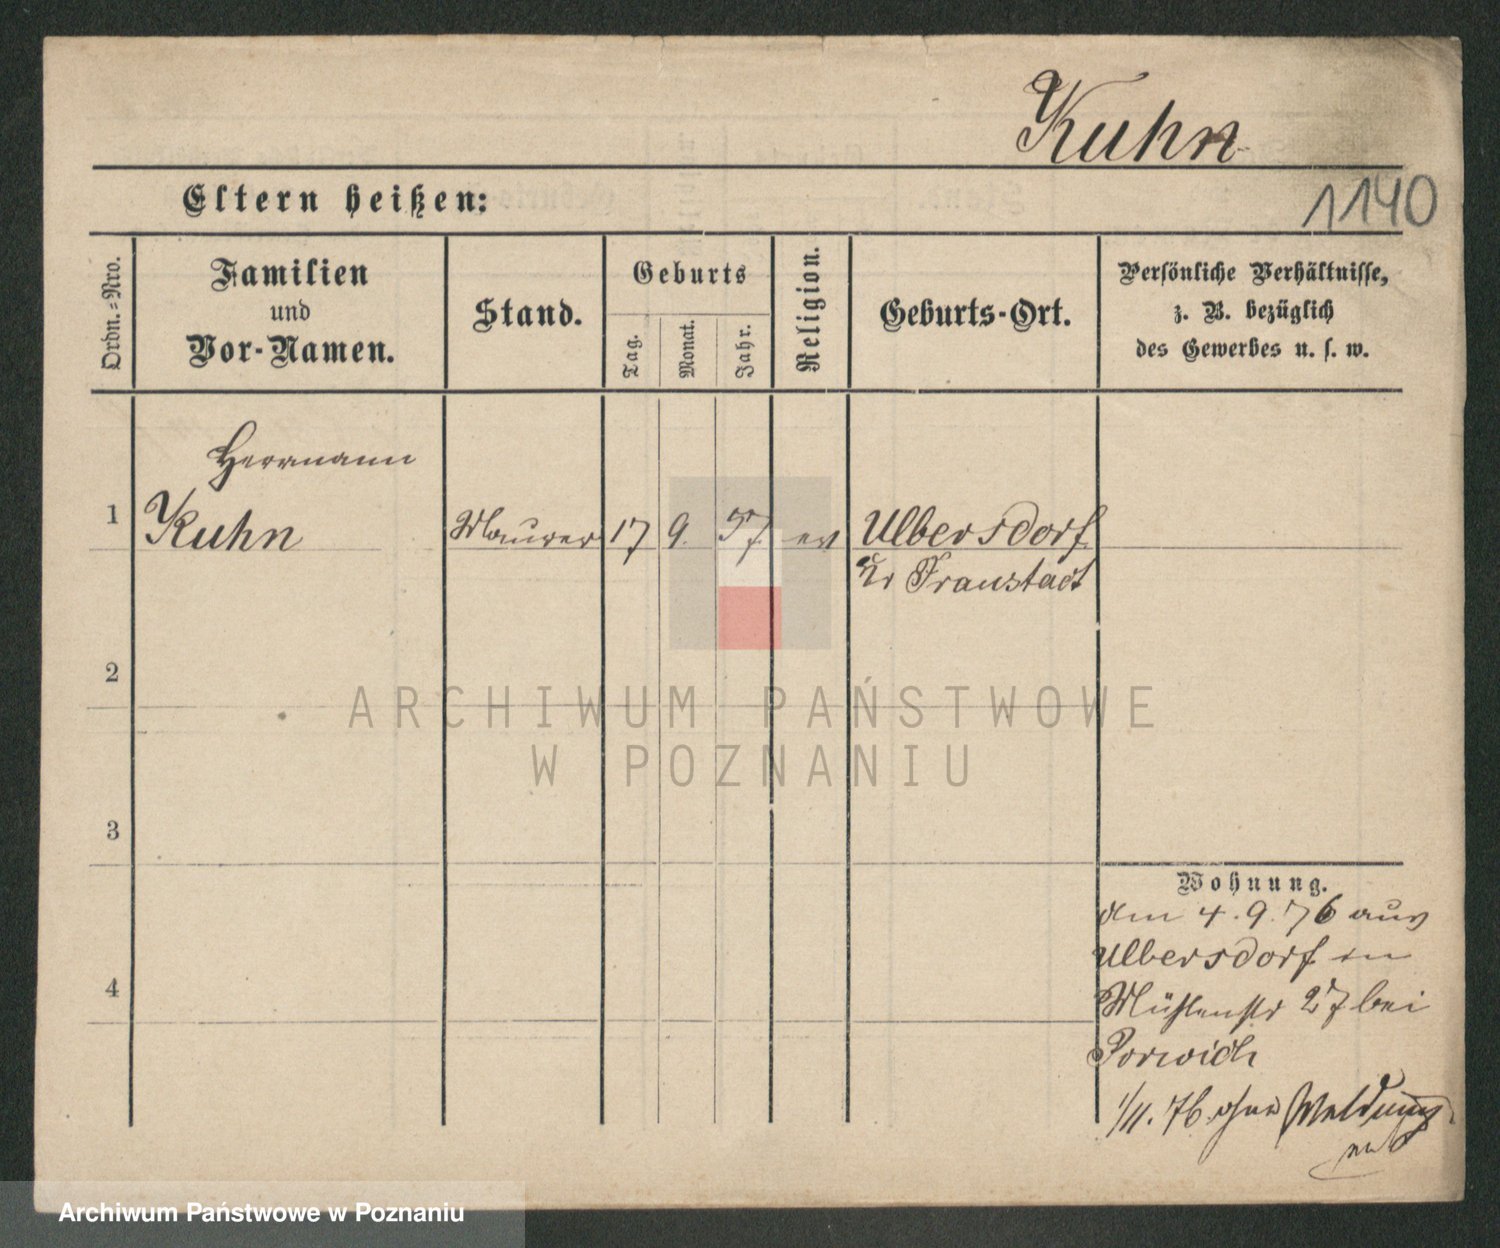 Kuhn
Eltern heißen:
1140
Ordn.-Nro.
Familien
und
Vor-Namen.
Stand.
Geburts
Tag.
Monat.
Jahr.
Religion.
Geburts-Ort.
Persönliche Verhältnisse,
z. B. bezüglich
des Gewerbes u. s. w.
Herrmann
1 Kuhn Maurer 17 9. 57 ev Ulbersdorf
Kr Fraustadt
2
ARCHIWUM PAŃSTWOWE
W POZNANIU
3
Wohnung.
den 4. 9. 76 aus
Ulbersdorf in
4
Mühlenstr 27 bei
Porwich
1/11. 76 ohne Meldung
Archiwum Państwowe w Poznaniu